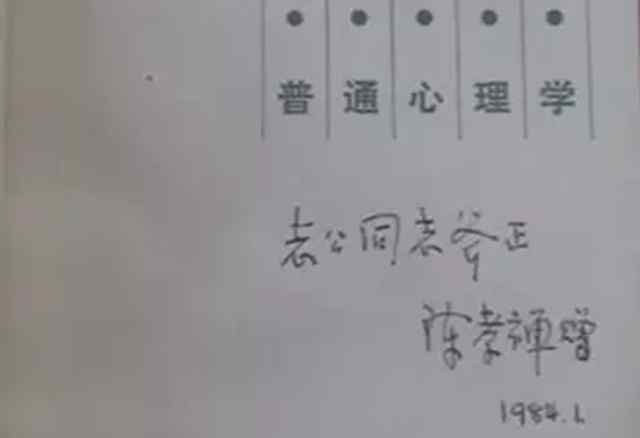 普通心理学
志公同志斧正
陈孝禅赠
1984.1.